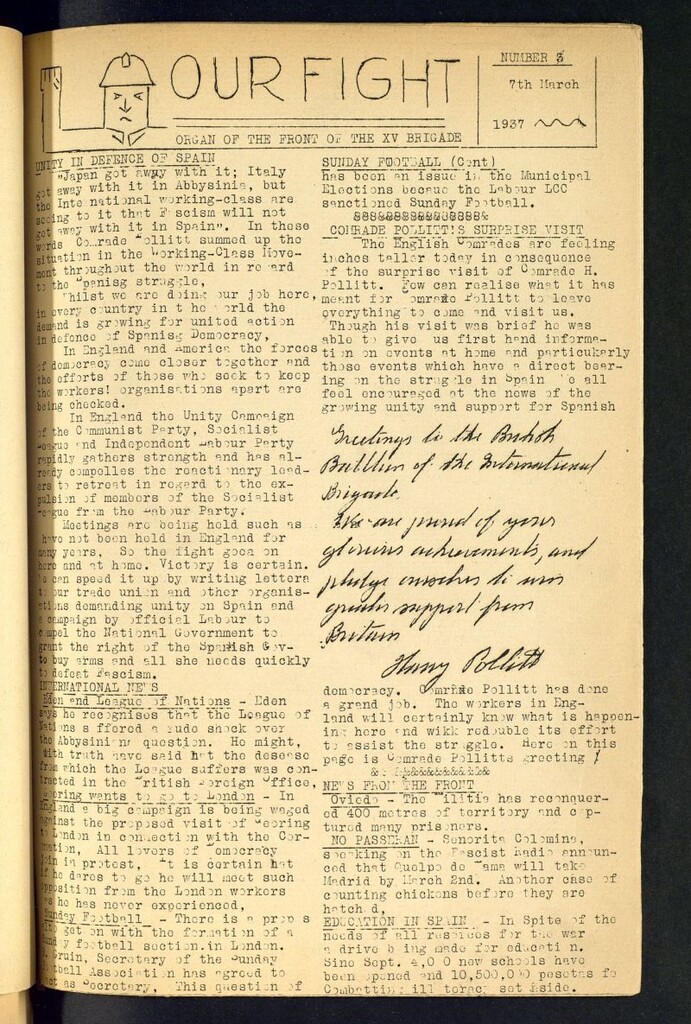 OUR FIGHT
NUMBER 3
7th March
1937
ORGAN OF THE FRONT OF THE XV BRIGADE
UNITY IN DEFENCE OF SPAIN
"Japan got away with it; Italy
got away with it in Abbysinia, but
the Inte national working-class are
seeing to it that Fascism will not
get away with it in Spain". In these
words Comrade Pollitt summed up the
situation in the Working-Class Move-
ment throughout the world in regard
to the Spanisg struggle,
Whilst we are doing our job here,
in every country in the world the
demand is growing for united action
in defence of Spanisg Democracy,
In England and America the forces
of democracy come closer together and
the efforts of those who seek to keep
the workers! organisations apart are
being checked.
In England the Unity Campaign
of the Communist Party, Socialist
League and Independent Labour Party
rapidly gathers strength and has al-
ready compelles the reactionary lead-
ers to retreat in regard to the ex-
pulsion of members of the Socialist
League from the Labour Party.
Meetings are being held such as
have not been held in England for
many years, So the fight goes on
here and at home. Victory is certain.
We can speed it up by writing letters
to our trade union and other organis-
ations demanding unity on Spain and
a campaign by official Labour to
compel the National Government to
grant the right of the Spanish Gov-
to buy arms and all she needs quickly
to defeat Fascism.
INTERNATIONAL NEWS
Eden and League of Nations - Eden
says he recognises that the League of
Nations s ffered a rude shock over
the Abyssinian question. He might,
with truth have said hat the desease
from which the League suffers was con-
tracted in the British Foreign Office,
Goering wants to go to London - In
England a big campaign is being waged
against the proposed visit of Goering
to London in connection with the Cor-
onation, All lovers of Democracy
join in protest, It is certain hat
if he dares to go he will meet such
opposition from the London workers
as he has never experienced,
Sunday Football - There is a prop s
to get on with the formation of a
Sunday football section.in London.
Bruin, Secretary of the Sunday
Football Association has agreed to
act as Secretary, This question of
SUNDAY FOOTBALL (Cont)
has been an issue in the Municipal
Elections becaue the Labour LCC
sanctioned Sunday Football.
&&&&&&&&&&&&&&&&&
COMRADE POLLITT'S SURPRISE VISIT
The English Comrades are feeling
inches taller today in consequence
of the surprise visit of Comrade H.
Pollitt. Few can realise what it has
meant for Comrade Pollitt to leave
everything to come and visit us.
Though his visit was brief he was
able to give us first hand informa-
tion on events at home and particukarly
those events which have a direct bear-
ing on the struggle in Spain We all
feel encouraged at the news of the
growing unity and support for Spanish
Greetings to the British
Battalion of the International
Brigade.
We are proud of your
glorious achievements, and
pledge ourselves to win
greater support from
Britain
Harry Pollitt
democracy. Comrade Pollitt has done
a grand job. The workers in Eng-
land will certainly know what is happen-
ing here and wikk redouble its effort
to assist the struggle. Here on this
page is Comrade Pollitts greeting !
&&&&&&&&&&&&&&
NEWS FROM THE FRONT
Oviedo - The Militia has reconquer-
ed 400 metres of territory and cap-
tured many prisoners.
NO PASSERAN - Senorita Colomina,
speaking on the Fascist Radio announ-
ced that Quelpo de Lama will take
Madrid by March 2nd. Another case of
counting chickens before they are
hatch d,
EDUCATION IN SPAIN - In Spite of the
needs of all resorces for the war
a drive b ing made for educati n.
Sinc Sept. 4,0 0 new schools have
been opened and 10,500,000 pesetas fo
Combatting ill terac set aside.